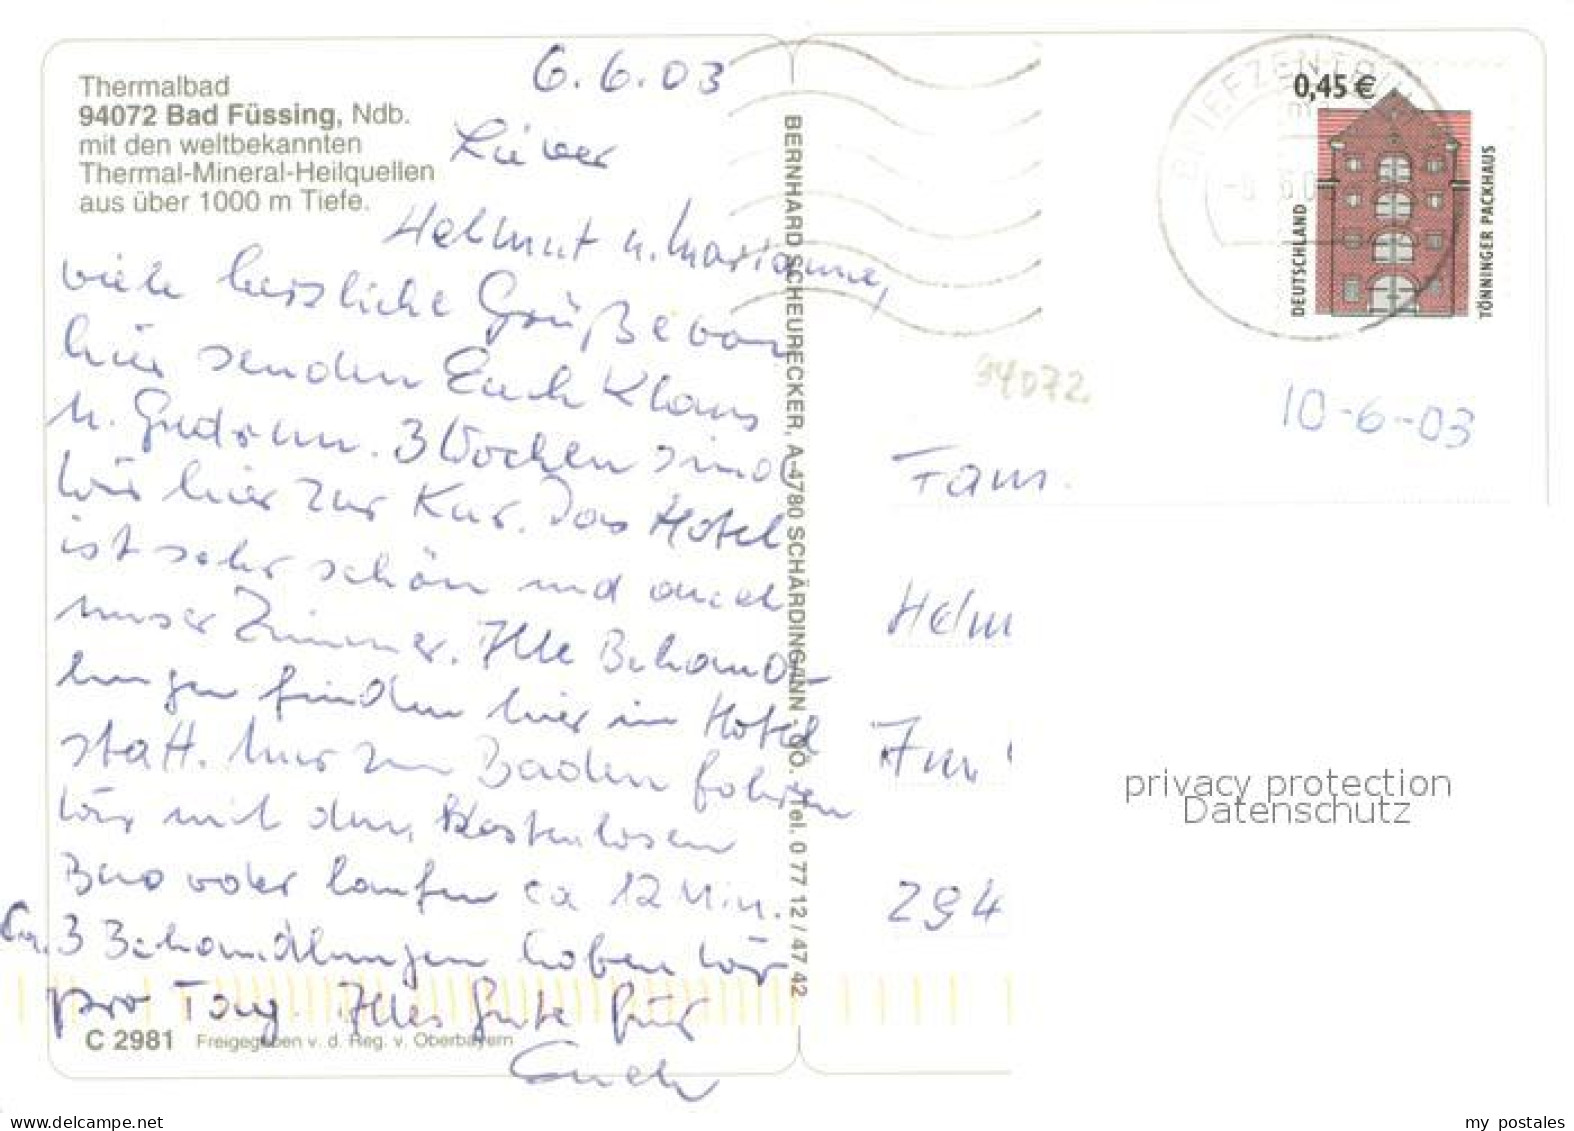 Thermalbad
94072 Bad Füssing, Ndb.
mit den weltbekannten
Thermal-Mineral-Heilquellen
aus über 1000 m Tiefe.
6.6.03
Lieber
Helmut u. Marianne,
viele herzliche Grüße von
hier senden Euch Klaus
u. Gudrun. 3 Wochen sind
wir hier zur Kur. Das Hotel
ist sehr schön und auch
unser Zimmer. Alle Behand-
lungen finden hier im Hotel
statt. Nur zum Baden fahren
wir mit dem Kostenlosen
Bus oder laufen ca 12 Min.
Ca. 3 Behandlungen haben wir
pro Tag. Alles Gute für
Euch
C 2981 Freigegeben v. d. Reg. v. Oberbayern
BERNHARD SCHEURECKER, A-4780 SCHÄRDING/INN, OÖ. Tel. 0 77 12 / 47 42
BRIEFZENTRUM
0,45 €
DEUTSCHLAND
TÖNNINGER PACKHAUS
94072
10-6-03
Fam.
Helm
Am
294
privacy protection
Datenschutz
www.delcampe.net
my postales